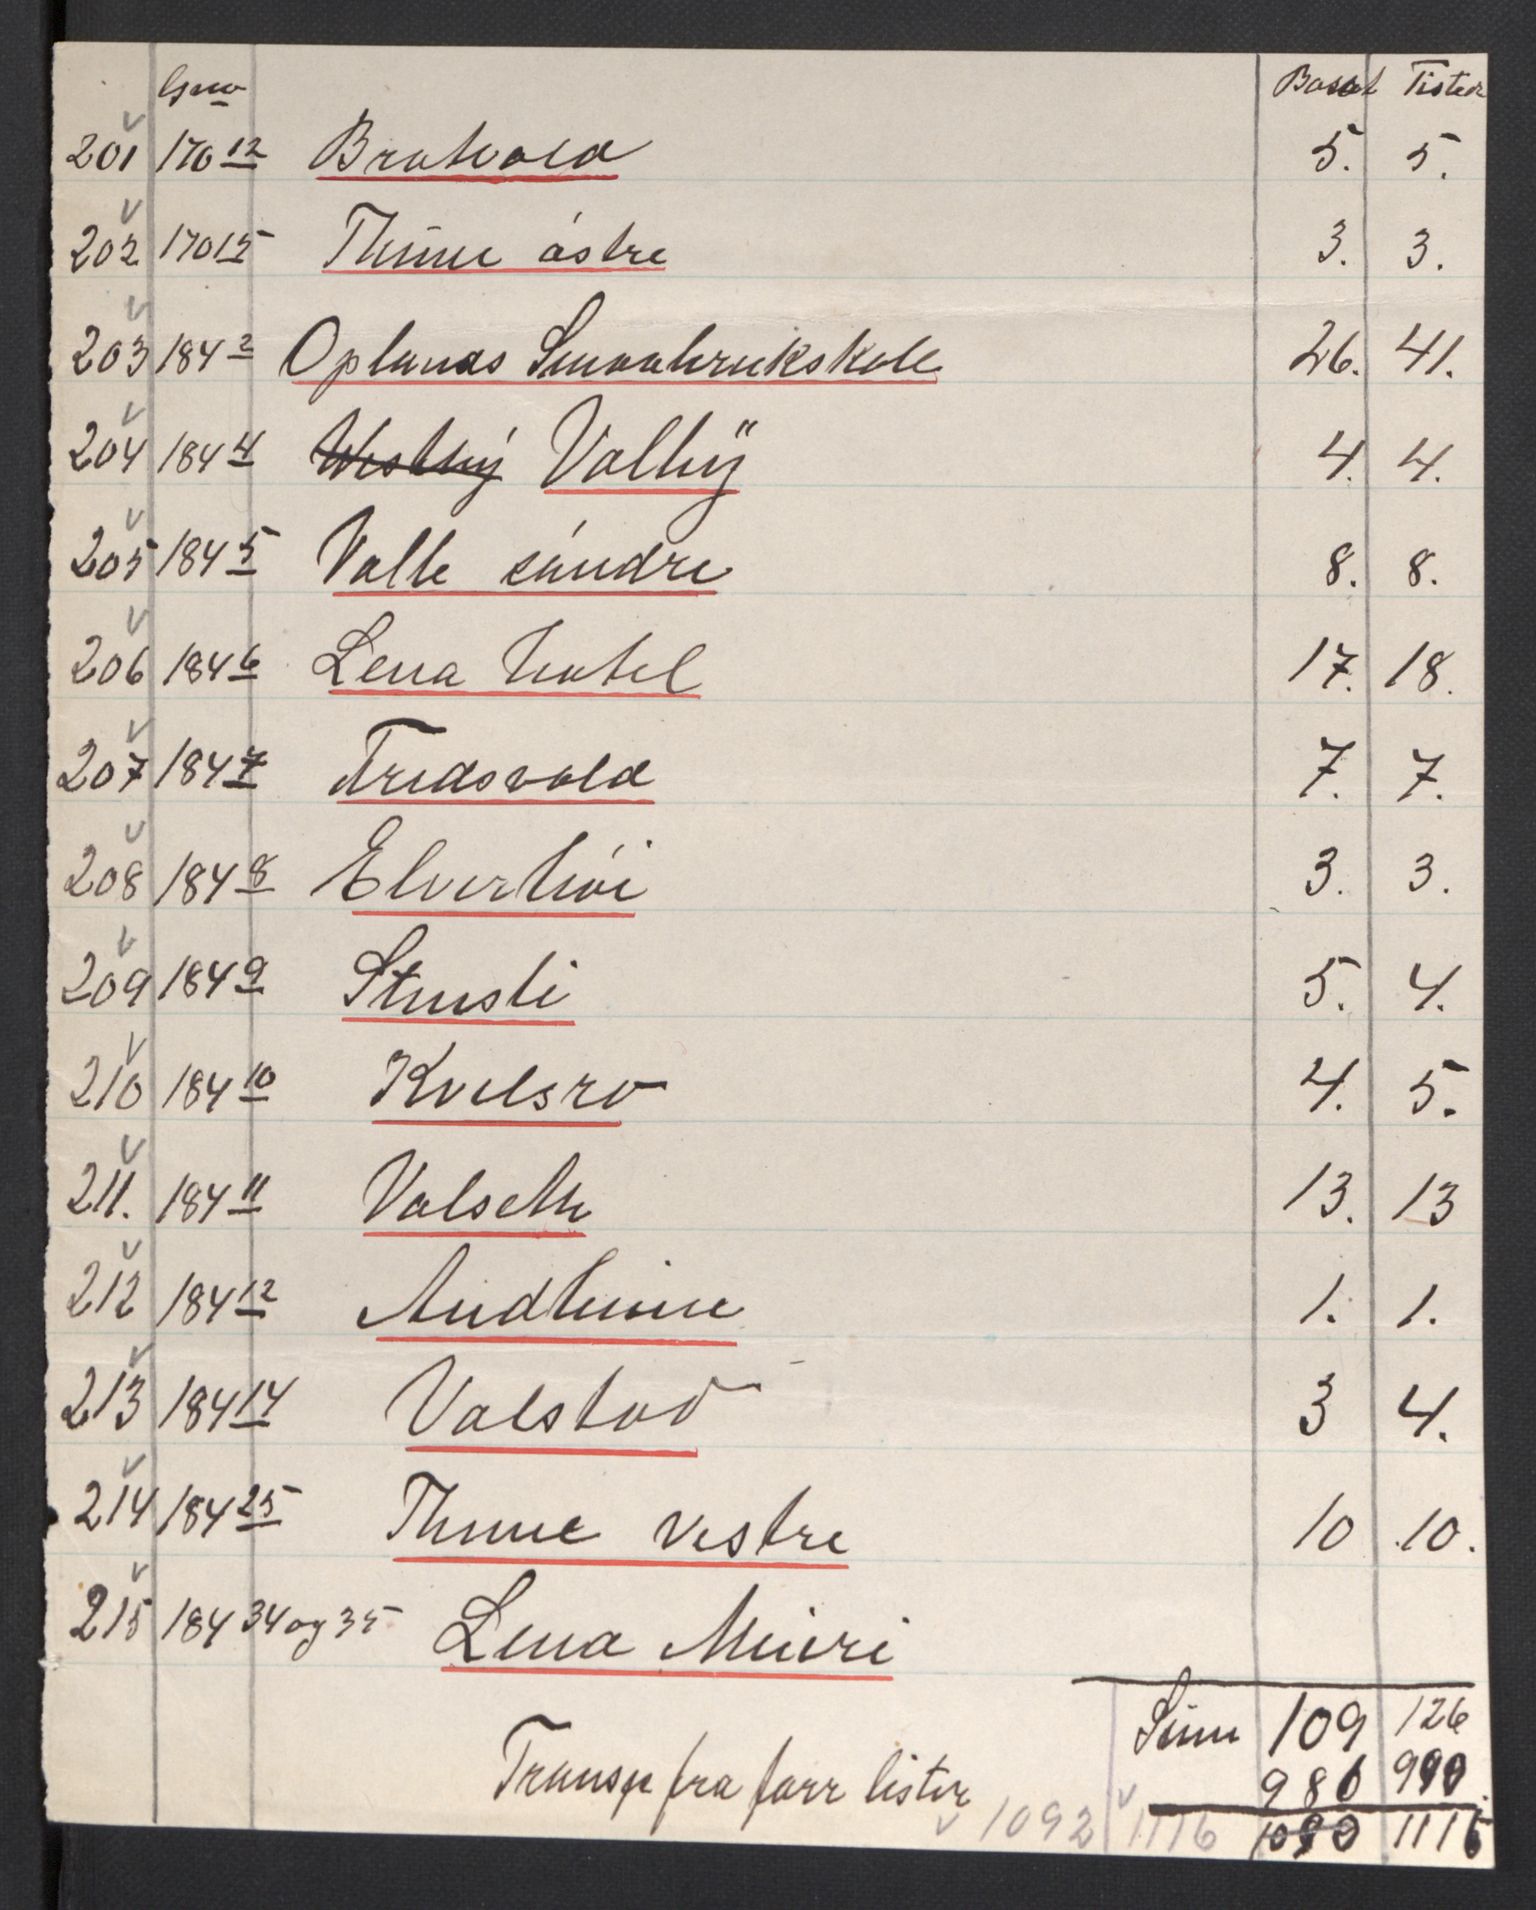 Gno Bosat Tisted
201 170 12 Bratvold 5. 5.
202 170 15 Thune østre 3. 3.
203 184 2 Oplands Smaabrukskole 26. 41.
204 184 4 Vestby Valby 4. 4.
205 184 5 Valle søndre 8. 8.
206 184 6 Lena hotel 17. 18.
207 184 7 Fredsvold 7. 7.
208 184 8 Elverhöi 3. 3.
209 184 9 Stensli 5. 4.
210 184 10 Kvelsro 4. 5.
211. 184 11 Valseth 13. 13
212 184 12 Andheim 1. 1.
213 184 14 Valstad 3 4.
214 184 25 Thune vestre 10 10.
215 184 34 og 35 Lena Meieri
Sum 109 126
Transp fra forr lister 986 990.
1092 1116 1090 1116